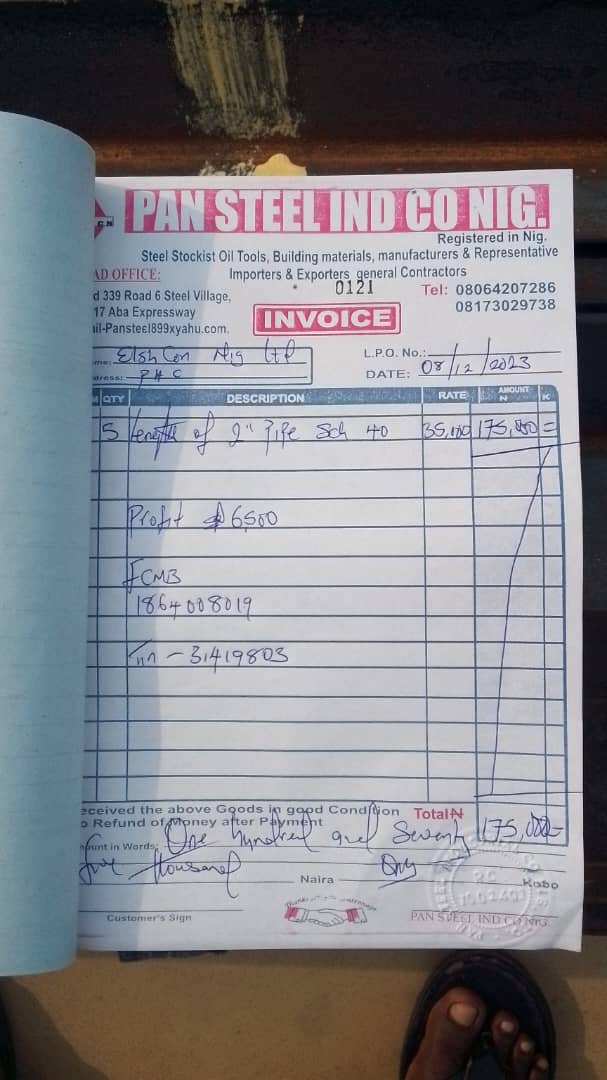 PAN STEEL IND CO NIG.
Registered in Nig.
Steel Stockist Oil Tools, Building materials, manufacturers & Representative
Importers & Exporters general Contractors
AD OFFICE:
d 339 Road 6 Steel Village,
17 Aba Expressway
il-Pansteel899xyahu.com.
0121
Tel: 08064207286
08173029738
INVOICE
me: Elsh Con Nig Ltd
dress: P.H.C
L.P.O. No.:
DATE: 08/12/2023
QTY DESCRIPTION RATE AMOUNT
N K
5 length of 2" Pipe Sch 40 35,000 175,000 =
Profit 6,500
FCMB
1864008019
Tin - 31419803
eceived the above Goods in good Condition
o Refund of Money after Payment
Total N 175,000=
ount in Words: One hundred and Seventy
five thousand Only
Naira Kobo
Customer's Sign
PAN STEEL IND CO NIG.